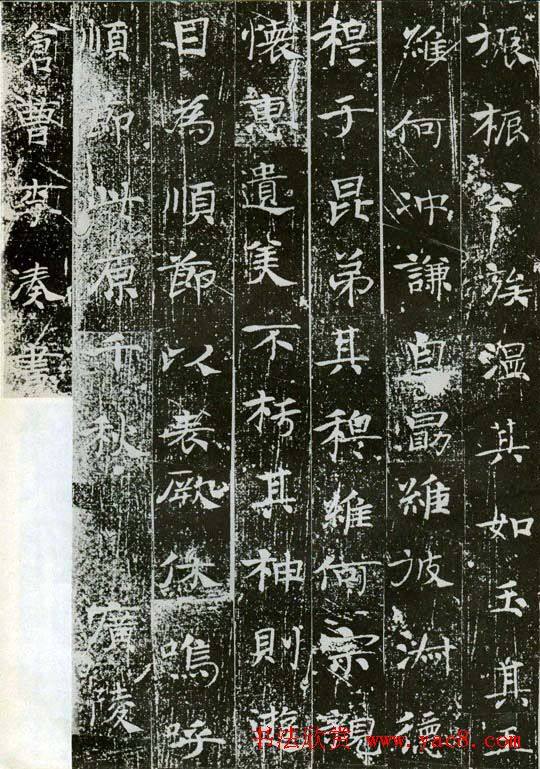 振振公族温其如玉其
維何冲謙自勗維彼淑德
穆于昆弟其穆維何宗親
懷惠遺美不朽其神則遊
目為順節以表厥休嗚呼
順節此原千秋 廣陵
倉曹李湊書
书法欣赏 www.yac8.com